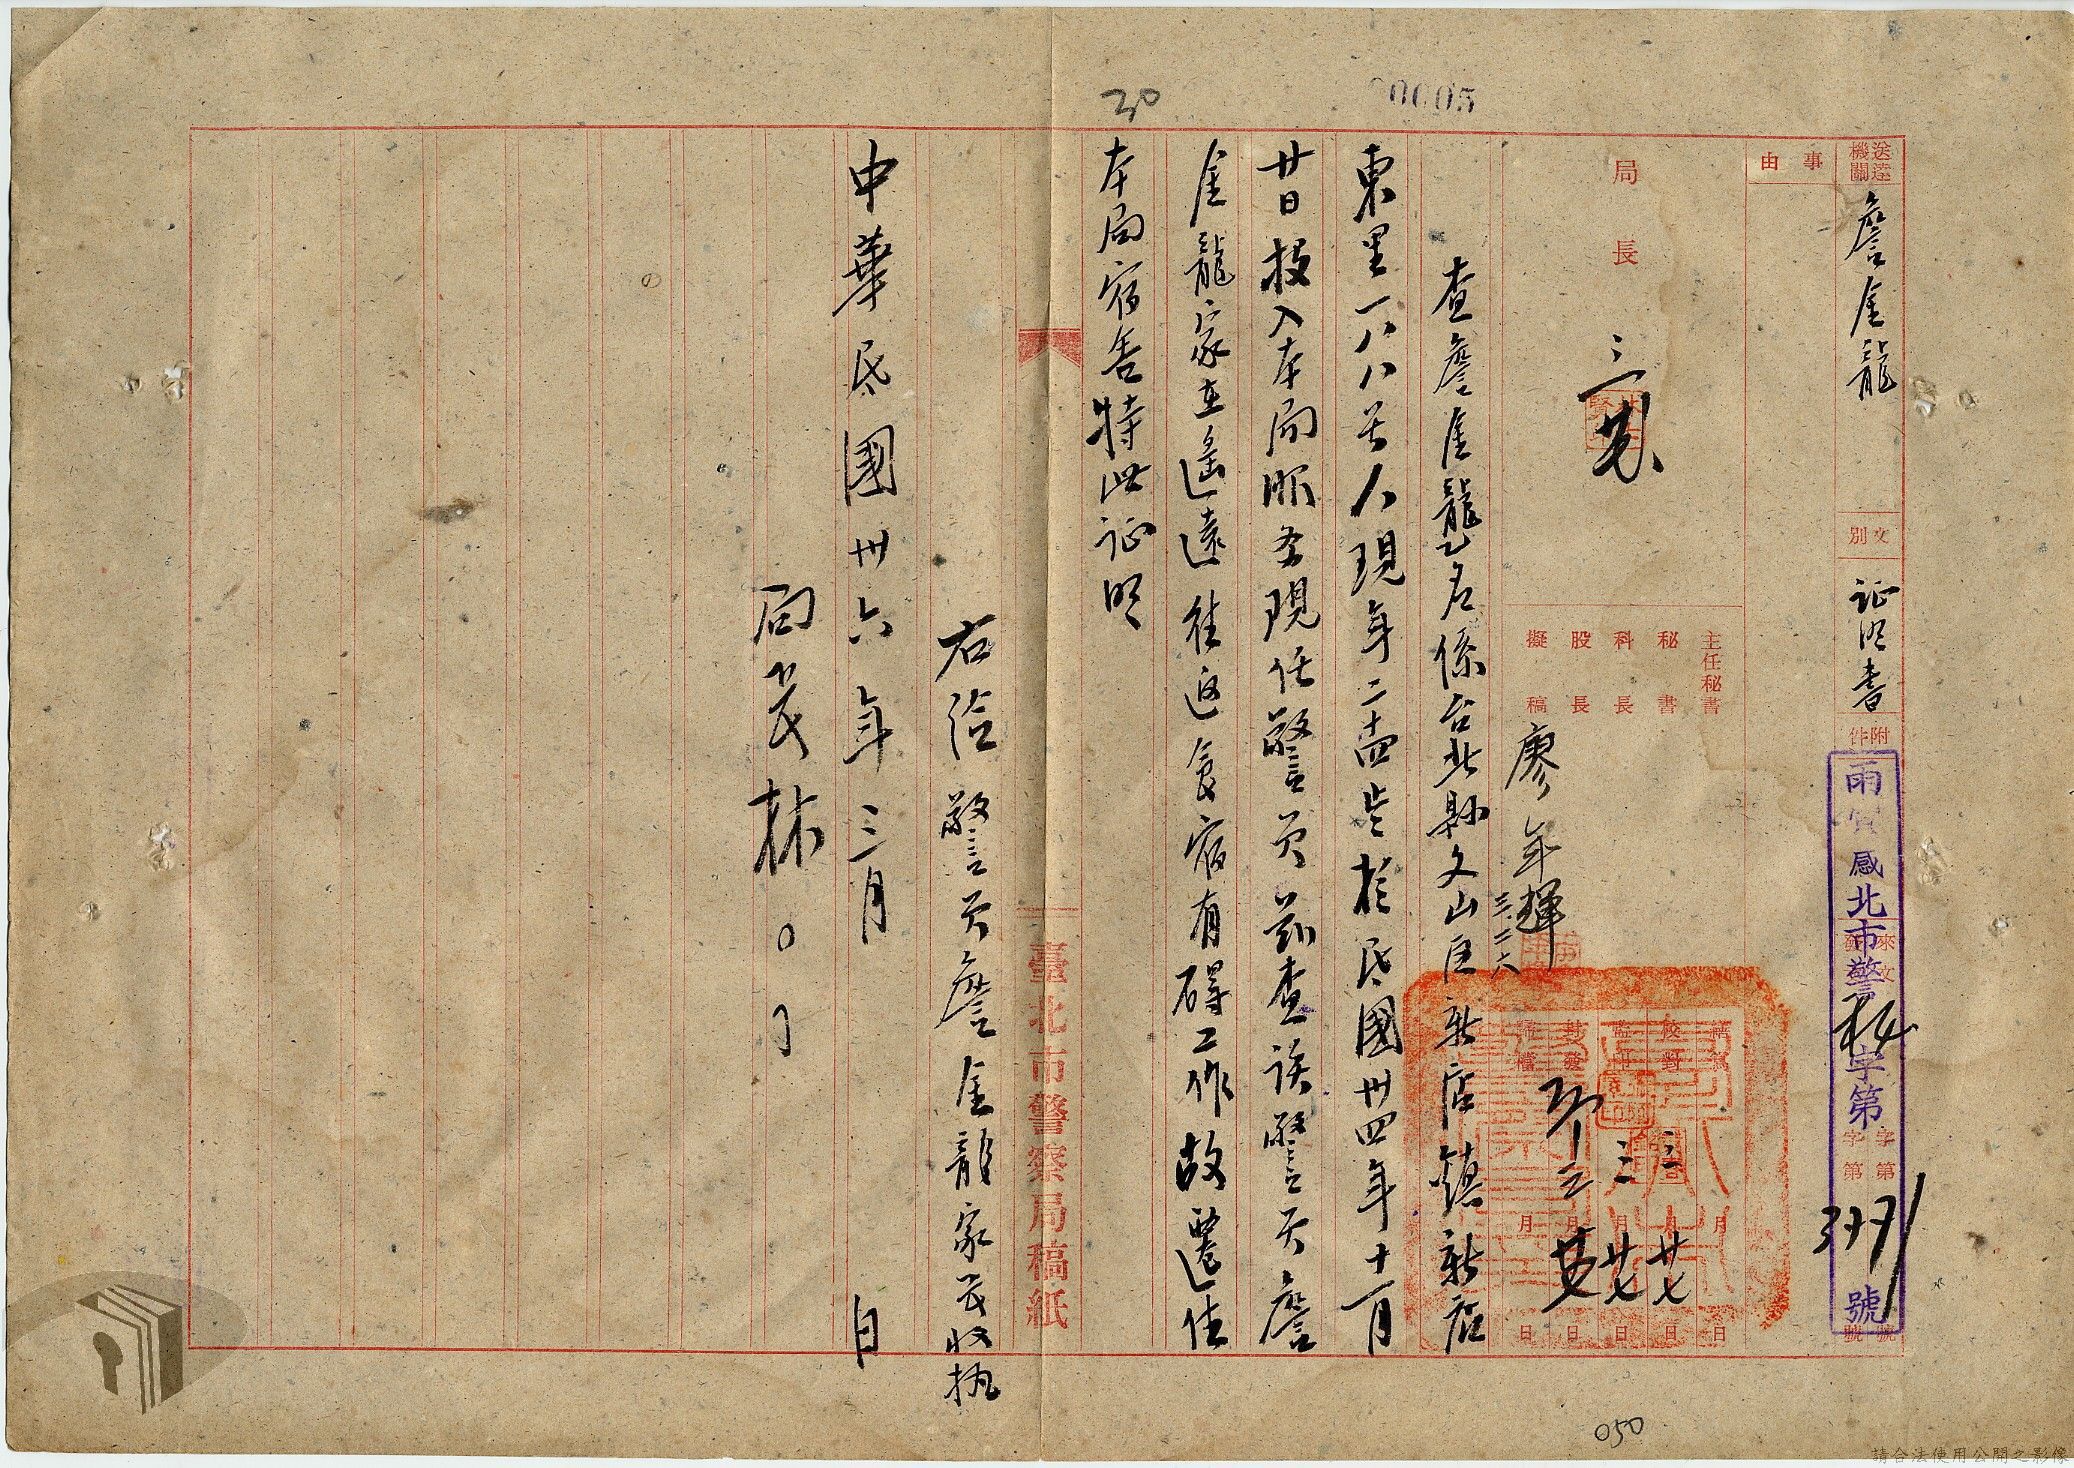 30
00005
送達機關
詹金龍
文別
証明書
附件
北市警秘字第3971號
來文
字第
號
事由
局長
主任秘書
秘書
科長
股長
擬稿
廖年輝
三.二六
校對
封發
月
日
三
廿七
查詹金龍乙名係台北縣文山区新店鎮新店
東里一八八号人現年二十四歲於民國卅四年十一月
廿日投入本局服务現任警員茲查該警員詹
金龍家在遙遠往返食宿有碍工作故遷住
本局宿舍特此证明
右給警員詹金龍家長收执
中華民國卅六年三月
日
局長林○○
臺北市警察局稿紙
050
請合法使用公開之影像